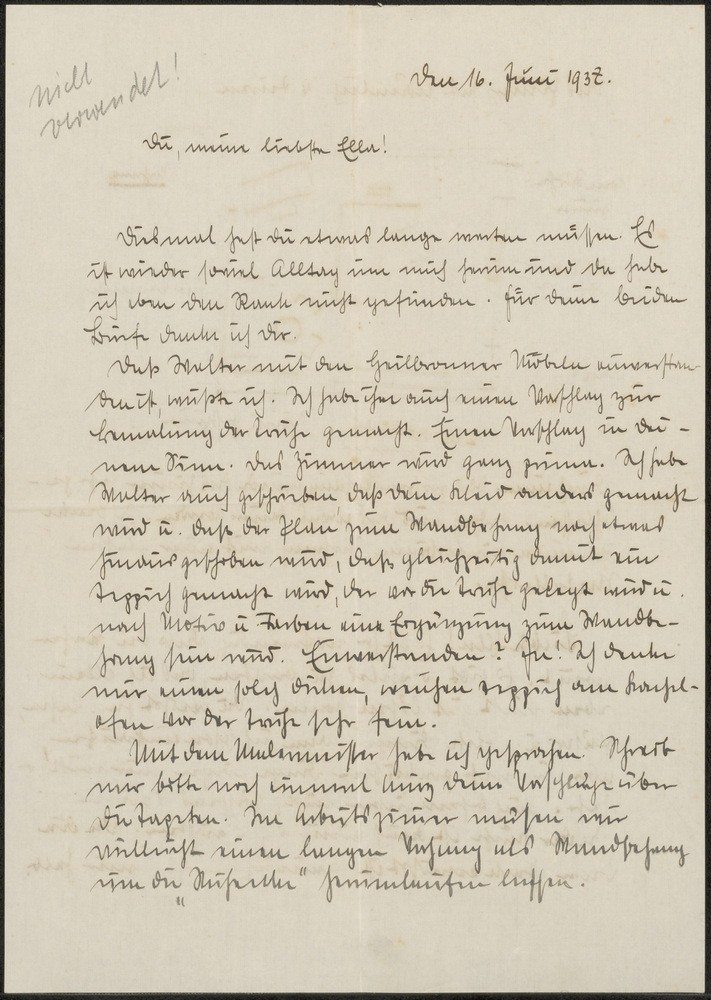 nicht
verwendet!
Den 16. Juni 1937.
Du, meine liebste Ella!
Diesmal hast Du etwas lange warten müssen. Es
ist wieder soviel Alltag um mich herum und da habe
ich eben den Rank nicht gefunden. Für Deine beiden
Briefe danke ich Dir.
Daß Walter mit den Heilbronner Möbeln einverstan-
den ist, wußte ich. Ich habe ihm auch einen Vorschlag zur
Bemalung der Truhe gemacht. Einen Vorschlag in Dei-
nem Sinn. Das Zimmer wird ganz prima. Ich habe
Walter auch geschrieben, daß dein Kleid anders gemacht
wird u. daß der Plan zum Wandbehang noch etwas
hinausgeschoben wird, daß gleichzeitig damit ein
Teppich gemacht wird, der vor die Truhe gelegt wird u.
nach Motiv u Farben eine Ergänzung zum Wandbe-
hang sein wird. Einverstanden? Ja! Ich denke
mir einen solch dicken, weichen Teppich am Kachel-
ofen vor der Truhe sehr fein.
Mit dem Malermeister habe ich gesprochen. Schreib
mir bitte noch einmal kurz Deine Vorschläge über
die Tapeten. Im Arbeitszimer müssen wir
vielleicht einen langen Vorhang als Wandbehang
um die " " herumlaufen lassen.